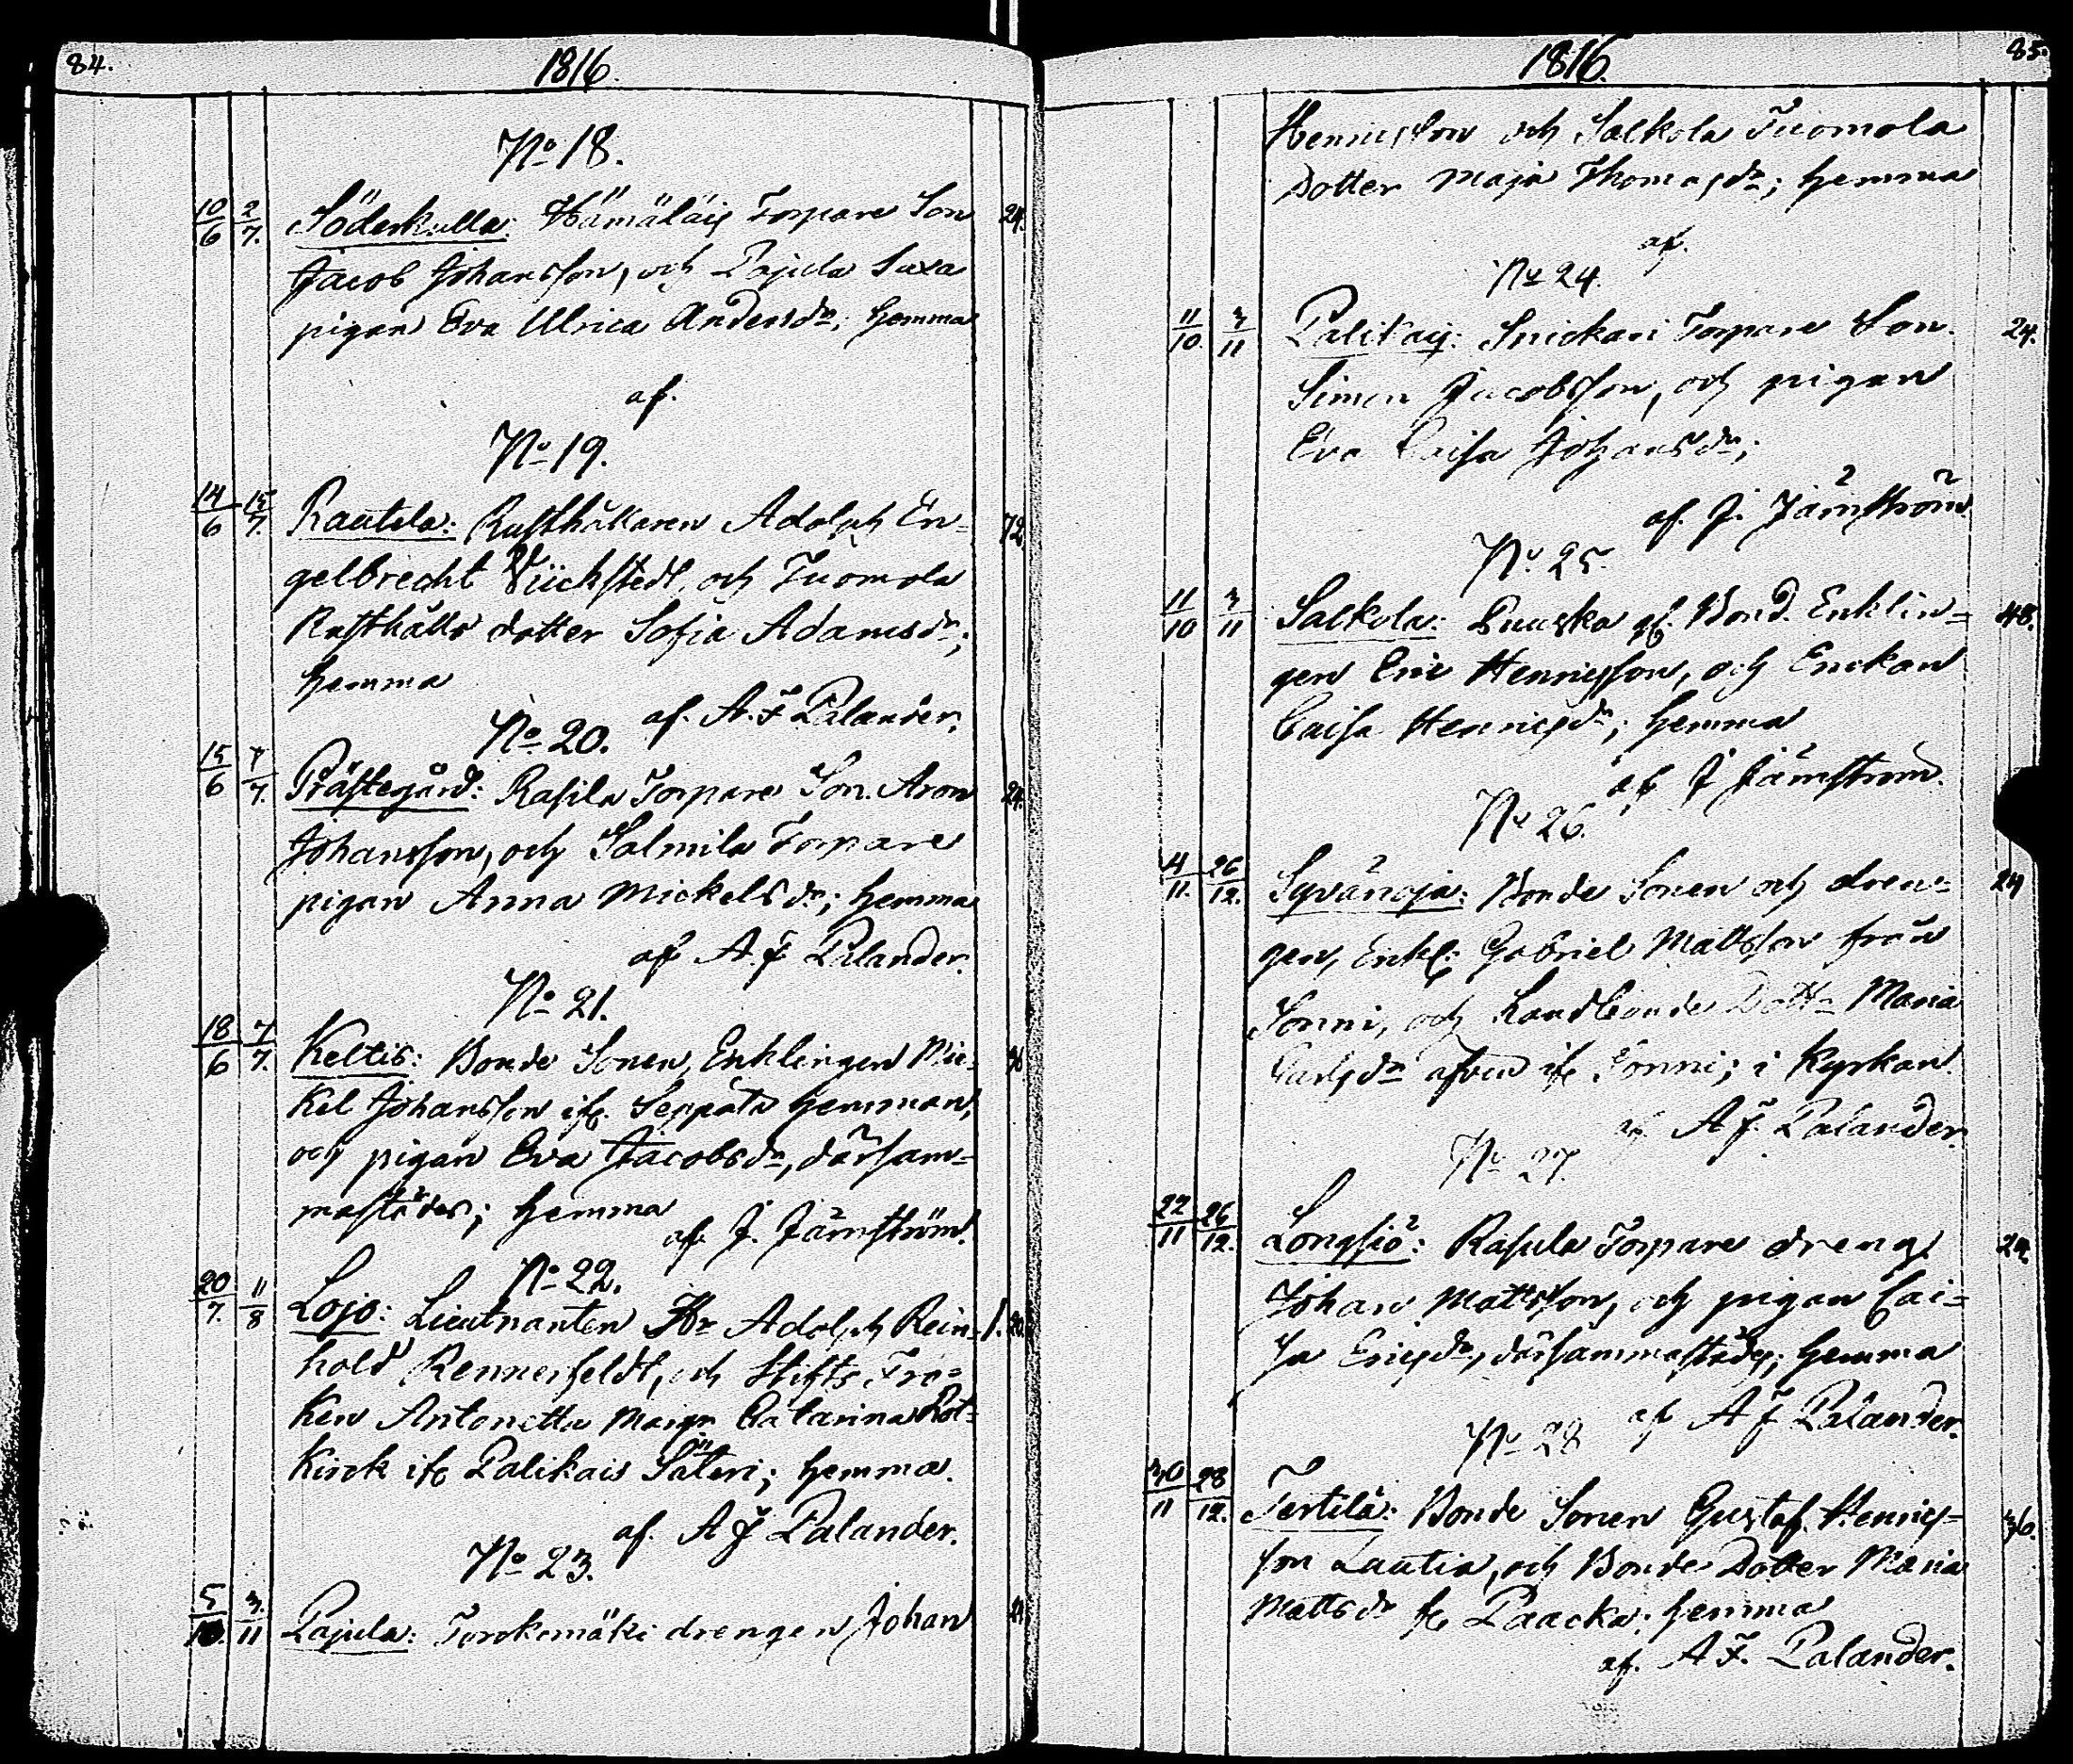 84.
1816.
No 18.
10/6 2/7. Söderkulla: Hämäläis Torpare Son 24.
Jacob Johansson, och Pajula Suxa
pigan Eva Ulrica Andersdr; hemma
af.
No 19.
14/6 15/7. Rautela: Rusthållaren Adolph En= 72
gelbrecht och Tuomola
Rusthålls dotter Sofia Adamsdr;
hemma
af. A. F Palander.
No 20.
15/6 7/7. Prästegård: Rasila Torpare Son Aron 24.
Johansson, och Salmila Torpare
pigan Anna Mickelsdr; hemma
af A. F Palander.
No 21.
18/6 7/7. Keltis: Bonde Sonen, Enklingen Mic=
kel Johansson ifr. Seppälä hemman,
och pigan Eva Jacobsdr, därsam=
mastädes; hemma
af. J. Järnström.
No 22.
20/7. 11/8 Lojo: Lieutnanten Hr Adolph Rein=
hold Rennerfeldt, och Stifts Frö=
ken Antonetta Margr Catarina Rot=
kirck ifr Palikais Säteri; hemma.
af. A F Palander.
No 23.
5/10. 3/11 Pajula: Torokemäki drengen Johan 24
1816.
85.
Henricsson och Salkola Tuomola
Dotter Maja Thomasdr; hemma
af.
No 24.
11/10. 3/11 Palikais: Snickari Torpare Son 24.
Simon Jacobsson, och pigan
Eva Caisa Johansdr;
af. J. Järnström.
No 25.
11/10 3/11 Salkola: Puuska gl. Bond. Enklin= 48.
gen Eric Henricsson, och Enckan
Caisa Henricsdr; hemma
af J Järnström.
No 26.
4/11. 26/12. Syvänoja: Bonde Sonen och dren= 24
gen, Enkl: Gabriel Mattsson från
Sonni, och Landbonde Dottr Maria
Carlsdr äfven ifr Sonni; i Kyrkan.
af A F. Palander
No 27.
22/11 26/12. Longsiö: Rasula Torpare dreng 24.
Johan Mattsson, och pigan Cai=
sa Ericsdr, därsammastädes; hemma
af A F Palander.
No 28
30/11 28/12. Terttilä: Bonde Sonen Gustaf Henrics= 36.
son Lautia, och Bonde Dotter Maria
Mattsdr fr Paacka; hemma
af. A F. Palander.